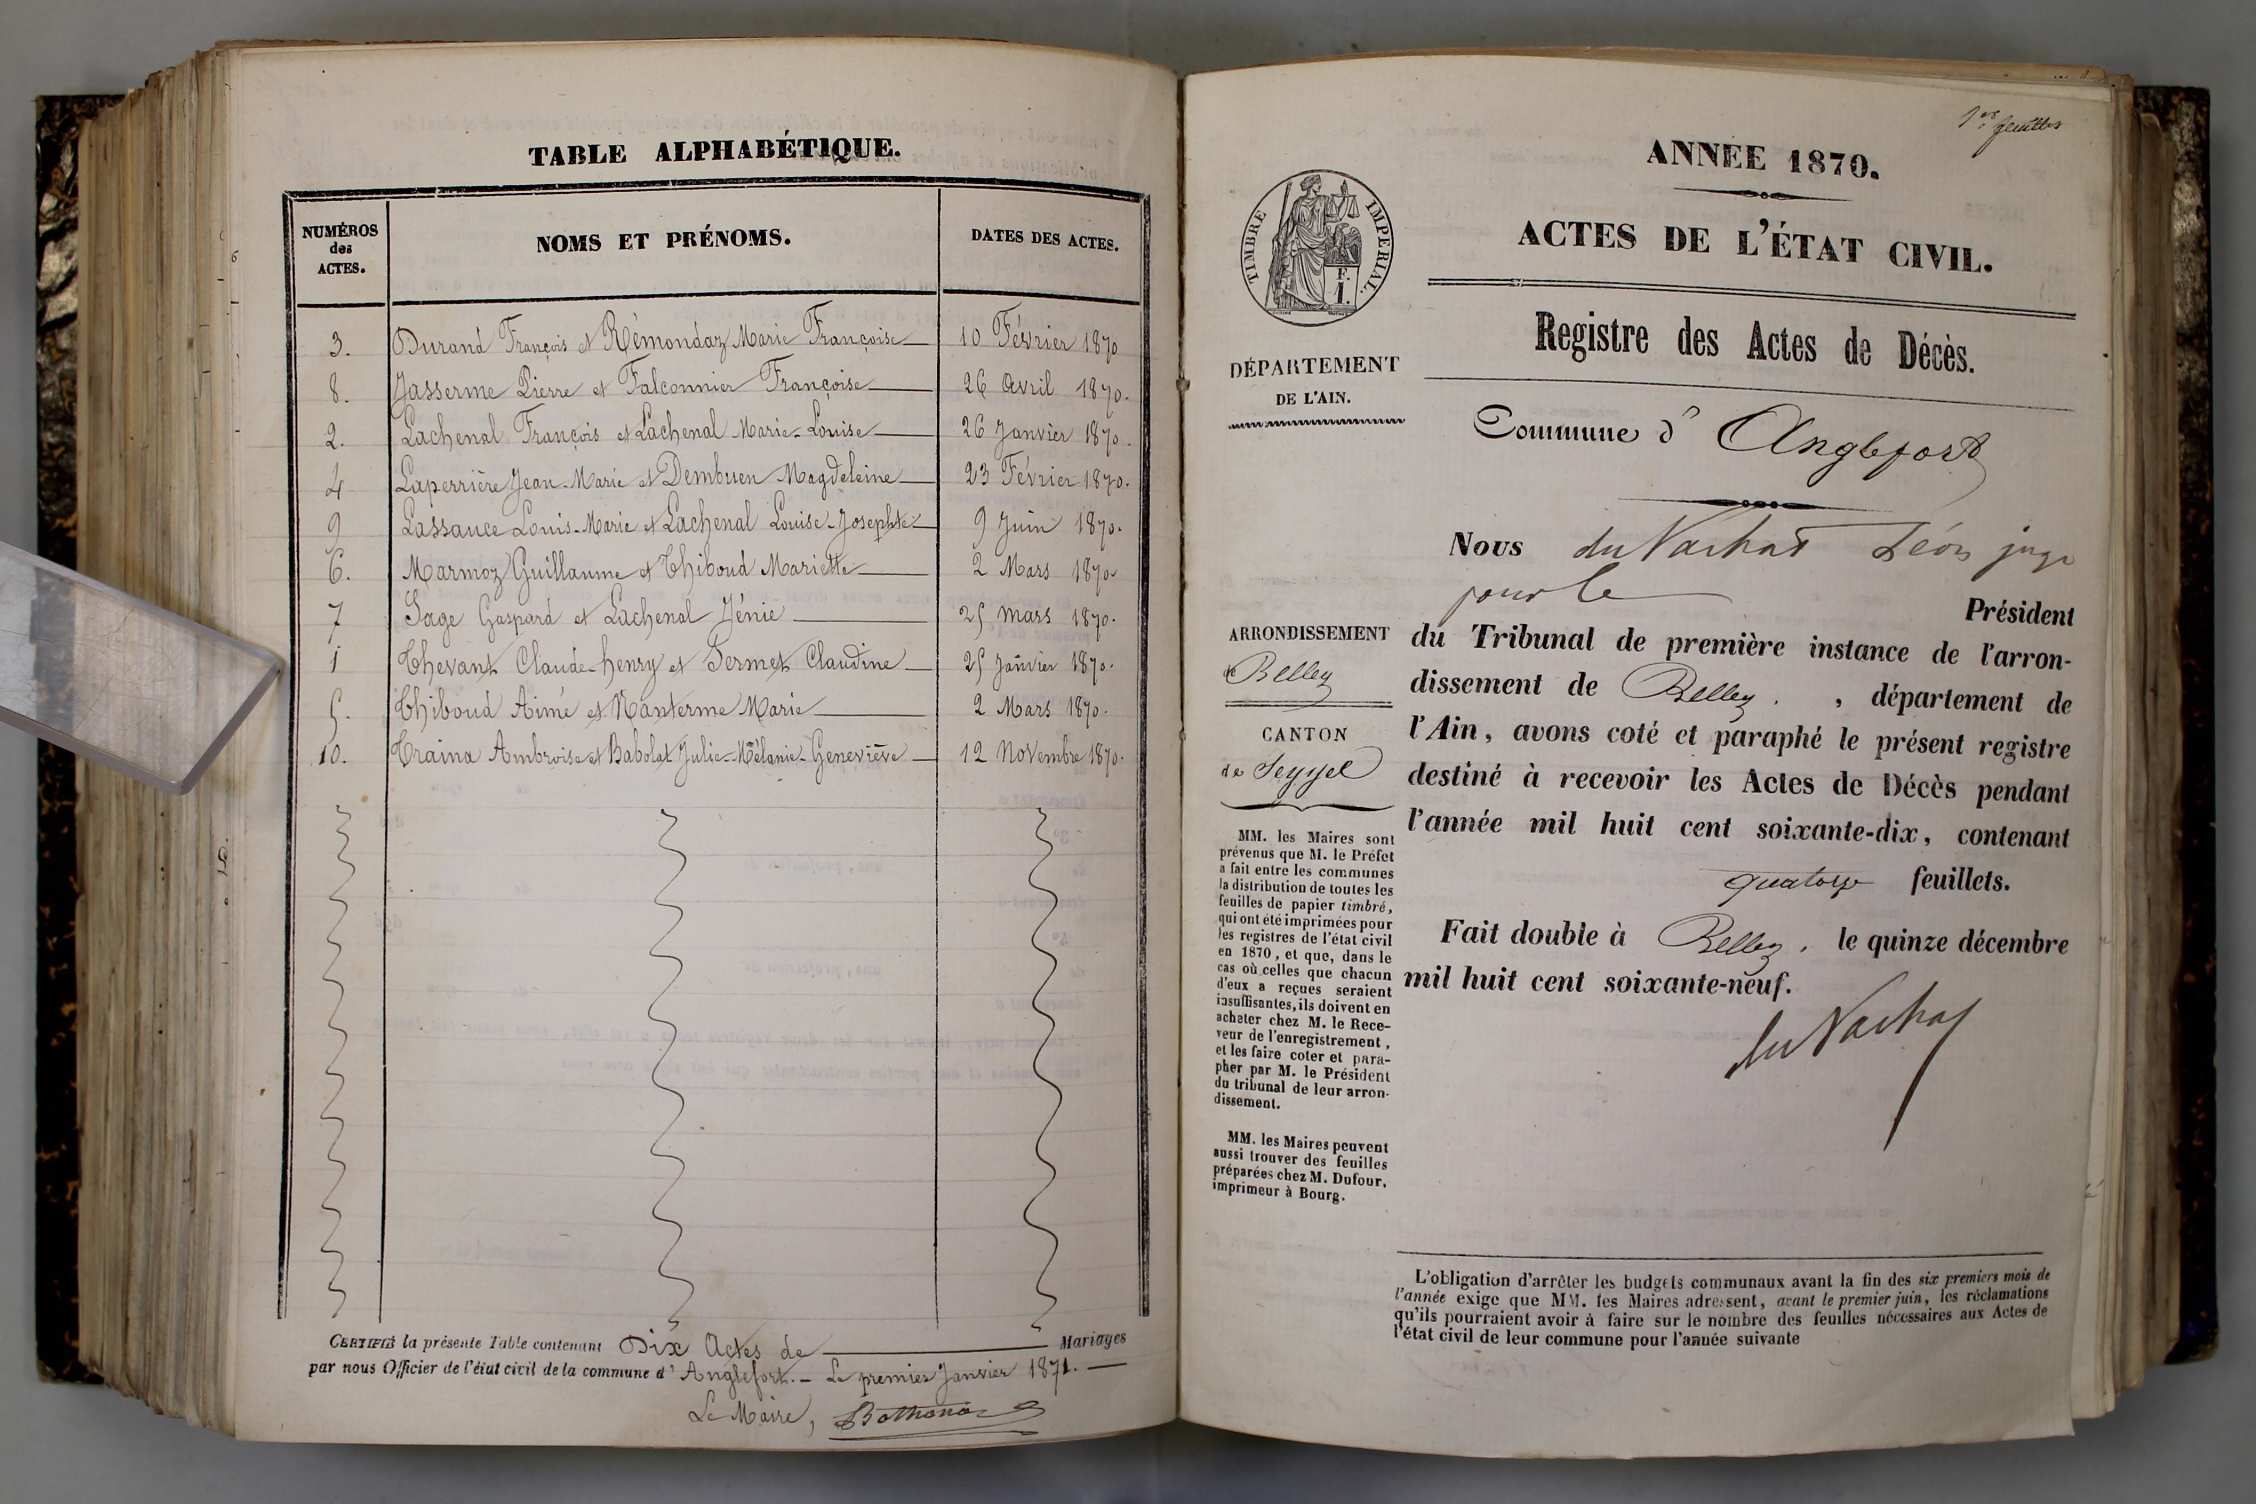 TABLE ALPHABÉTIQUE.
NUMÉROS des ACTES.
NOMS ET PRÉNOMS.
DATES DES ACTES.
3. Durand François et Rémondaz Marie Françoise 10 Février 1870
8. Jasserme Pierre et Falconnier Françoise 26 Avril 1870.
2. Lachenal François et Lachenal Marie-Louise 26 Janvier 1870.
4 Laperrière Jean-Marie et Dembuen Magdeleine 23 Février 1870.
9 Lassauce Louis-Marie et Lachenal Louise-Josephte 9 Juin 1870.
6. Marmoz Guillaume et Thiboud Mariette 2 Mars 1870
7 Sage Gaspard et Lachenal Jénie 25 Mars 1870.
1 Thevant Claude-henry et Sermet Claudine 25 Janvier 1870.
5. Thiboud Aimé et Nanterme Marie 2 Mars 1870.
10. Traina Ambroise et Babolat Julie-Mélanie-Geneviève 12 Novembre 1870.
CERTIFIÉ la présente Table contenant Dix Actes de Mariages
par nous Officier de l'état civil de la commune d'Anglefort. - Le premier Janvier 1871. -
Le Maire,
1er feuillet
ANNÉE 1870.
ACTES DE L'ÉTAT CIVIL.
Registre des Actes de Décès.
Commune d'Anglefort
TIMBRE IMPERIAL.
F.
1.
DÉPARTEMENT
DE L'AIN.
ARRONDISSEMENT
de Belley
CANTON
de Seyssel
MM. les Maires sont
prévenus que M. le Préfet
a fait entre les communes
la distribution de toutes les
feuilles de papier timbré,
qui ont été imprimées pour
les registres de l'état civil
en 1870, et que, dans le
cas où celles que chacun
d'eux a reçues seraient
insuffisantes, ils doivent en
acheter chez M. le Rece-
veur de l'enregistrement,
et les faire coter et para-
pher par M. le Président
du tribunal de leur arron-
dissement.
MM. les Maires peuvent
aussi trouver des feuilles
préparées chez M. Dufour,
imprimeur à Bourg.
Nous du Vachat Léon juge
pour le Président
du Tribunal de première instance de l'arron-
dissement de Belley. , département de
l'Ain, avons coté et paraphé le présent registre
destiné à recevoir les Actes de Décès pendant
l'année mil huit cent soixante-dix, contenant
quatorze feuillets.
Fait double à Belley, le quinze décembre
mil huit cent soixante-neuf.
du Vachat
L'obligation d'arrêter les budgets communaux avant la fin des six premiers mois de
l'année exige que MM. les Maires adressent, avant le premier juin, les réclamations
qu'ils pourraient avoir à faire sur le nombre des feuilles nécessaires aux Actes de
l'état civil de leur commune pour l'année suivante